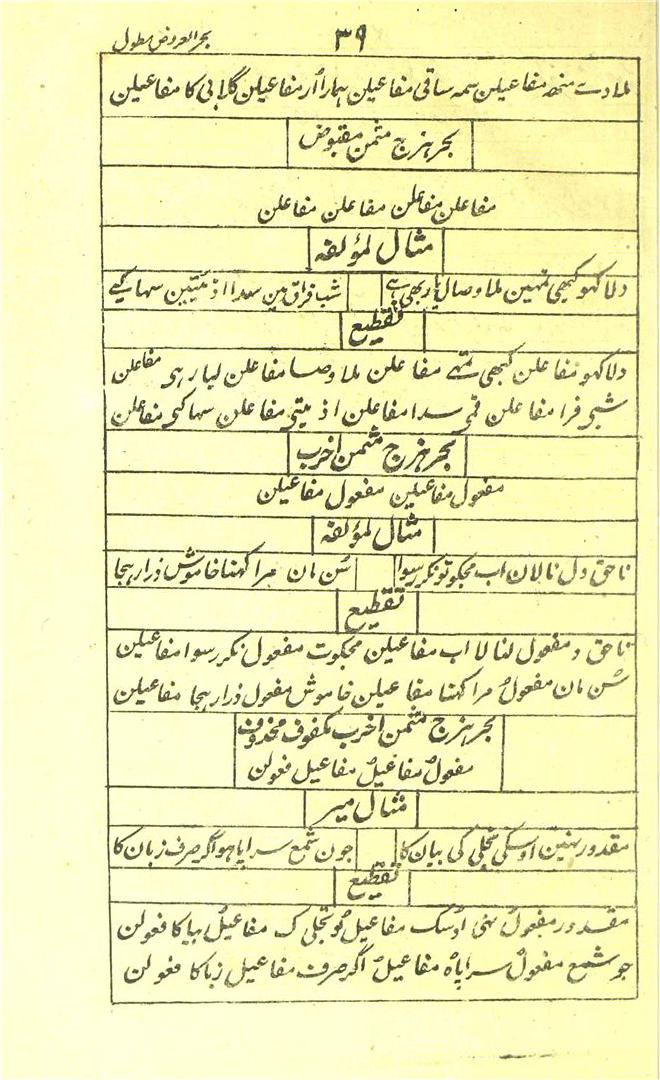 ۳۹
بحر العروض مطول
ملادے منھ مفاعیلن سمہ ساقی مفاعیلن ہمارا اُر مفاعیلن گلابی کا مفاعیلن
بحر ہزج مثمن مقبوض
مفاعلن مفاعلن مفاعلن مفاعلن
مثال لمؤلفہ
دلا کہو کبھی نہین ملا وصال یار بھی ہے
شب فراق مین سدا اذیتین سہا کیے
تقطیع
دلا کہو مفاعلن کبھی نہے مفاعلن ملا وصا مفاعلن لیا رہی مفاعلن
شبی فرا مفاعلن قمی سدا مفاعلن اذیتی مفاعلن سہا کی مفاعلن
بحر ہزج مثمن اخرب
مفعول مفاعیلن مفعول مفاعیلن
مثال لمؤلفہ
ناحق دل نالان اب مجکو تو نکر رسوا
سُن مان مرا کہنا خاموش ذرا رہجا
تقطیع
ناحق د مفعول لنالا اب مفاعیلن مجکوت مفعول نکر رسوا مفاعیلن
سُن مان مفعولُ مرا کہنا مفاعیلن خاموش مفعول ذرا رہجا مفاعیلن
بحر ہزج مثمن اخرب مکفوف محذوف
مفعولُ مفاعیلُ مفاعیل فعولن
مثال میر
مقدور نہین اوسکی تجلی کی بیان کا
جون شمع سراپا ہو اگر صرف زبان کا
تقطیع
مقدور مفعولُ نہی اُوسک مفاعیلُ تجلی ک مفاعیلُ بیا کا فعولن
جو شمع مفعولُ سراپاہُ مفاعیلُ اگر صرف مفاعیل زبا کا فعولن